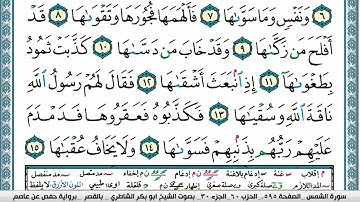 ٦ وَنَفْسٍ وَمَا سَوَّىٰهَا ٧ فَأَلْهَمَهَا فُجُورَهَا وَتَقْوَىٰهَا ٨ قَدْ
أَفْلَحَ مَن زَكَّىٰهَا ٩ وَقَدْ خَابَ مَن دَسَّىٰهَا ١٠ كَذَّبَتْ ثَمُودُ
بِطَغْوَىٰهَآ ١١ إِذِ ٱنۢبَعَثَ أَشْقَىٰهَا ١٢ فَقَالَ لَهُمْ رَسُولُ ٱللَّهِ
نَاقَةَ ٱللَّهِ وَسُقْيَـٰهَا ١٣ فَكَذَّبُوهُ فَعَقَرُوهَا فَدَمْدَمَ
عَلَيْهِمْ رَبُّهُم بِذَنۢبِهِمْ فَسَوَّىٰهَا ١٤ وَلَا يَخَافُ عُقْبَـٰهَا ١٥
سورة الشمس الصفحة ٥٩٥ الحزب ٦٠ الجزء ٣٠ بصوت الشيخ أبو بكر الشاطري بالقصر برواية حفص عن عاصم